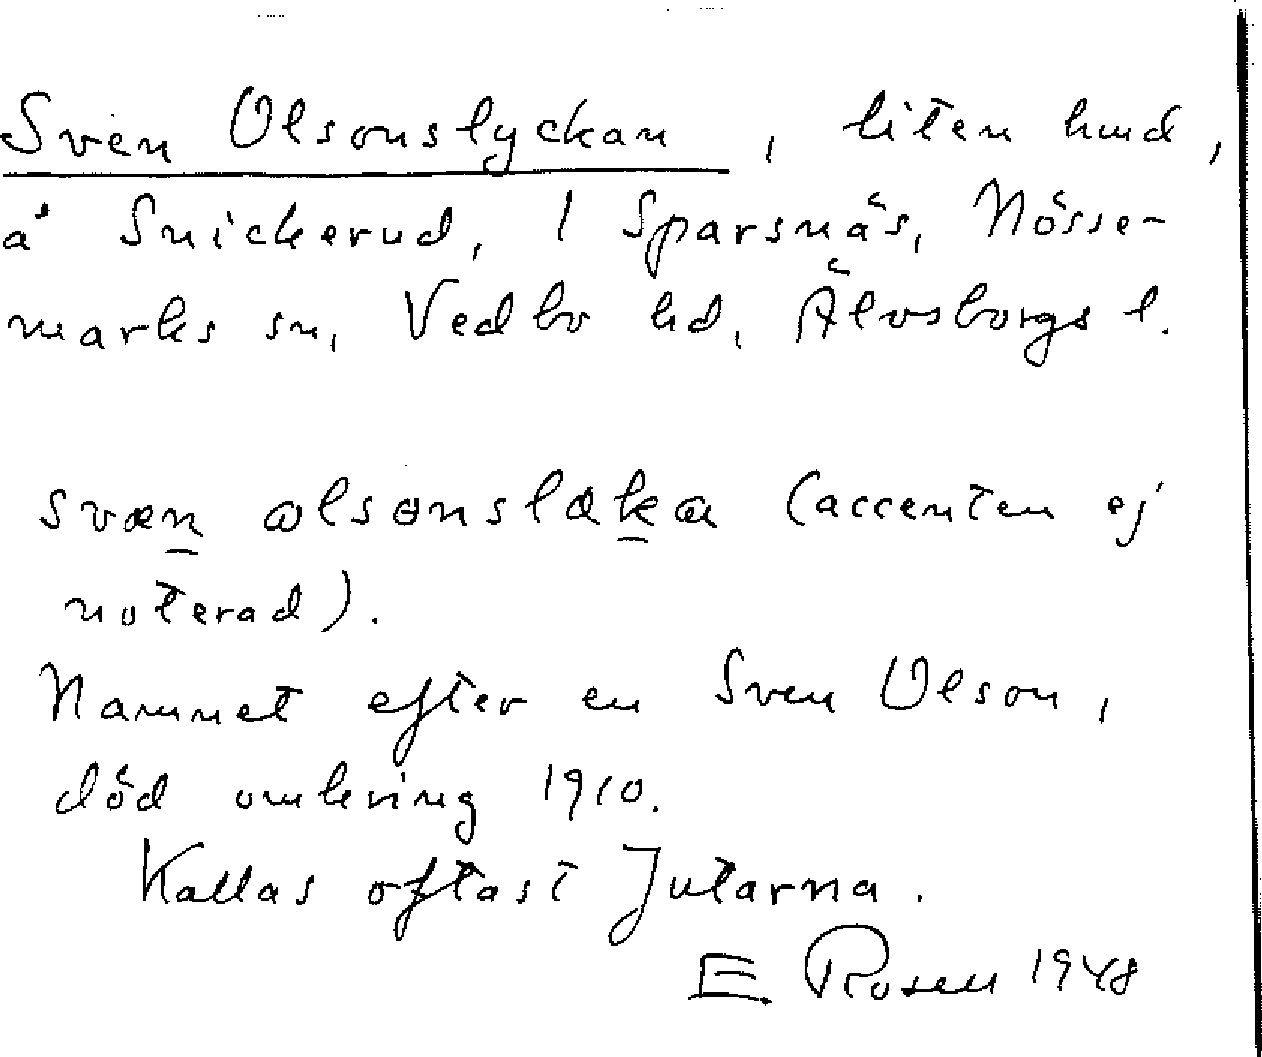 Sven Olsonslyckan, liten lund,
å Snickerud, 1 Sparsnäs, Nösse-
marks sn, Vedbo hd, Älvsborgs l.
svæn olsonslækα (accenten ej
noterad).
Namnet efter en Sven Olson,
död omkring 1910.
Kallas oftast Jutarna.
E. Rosen 1948